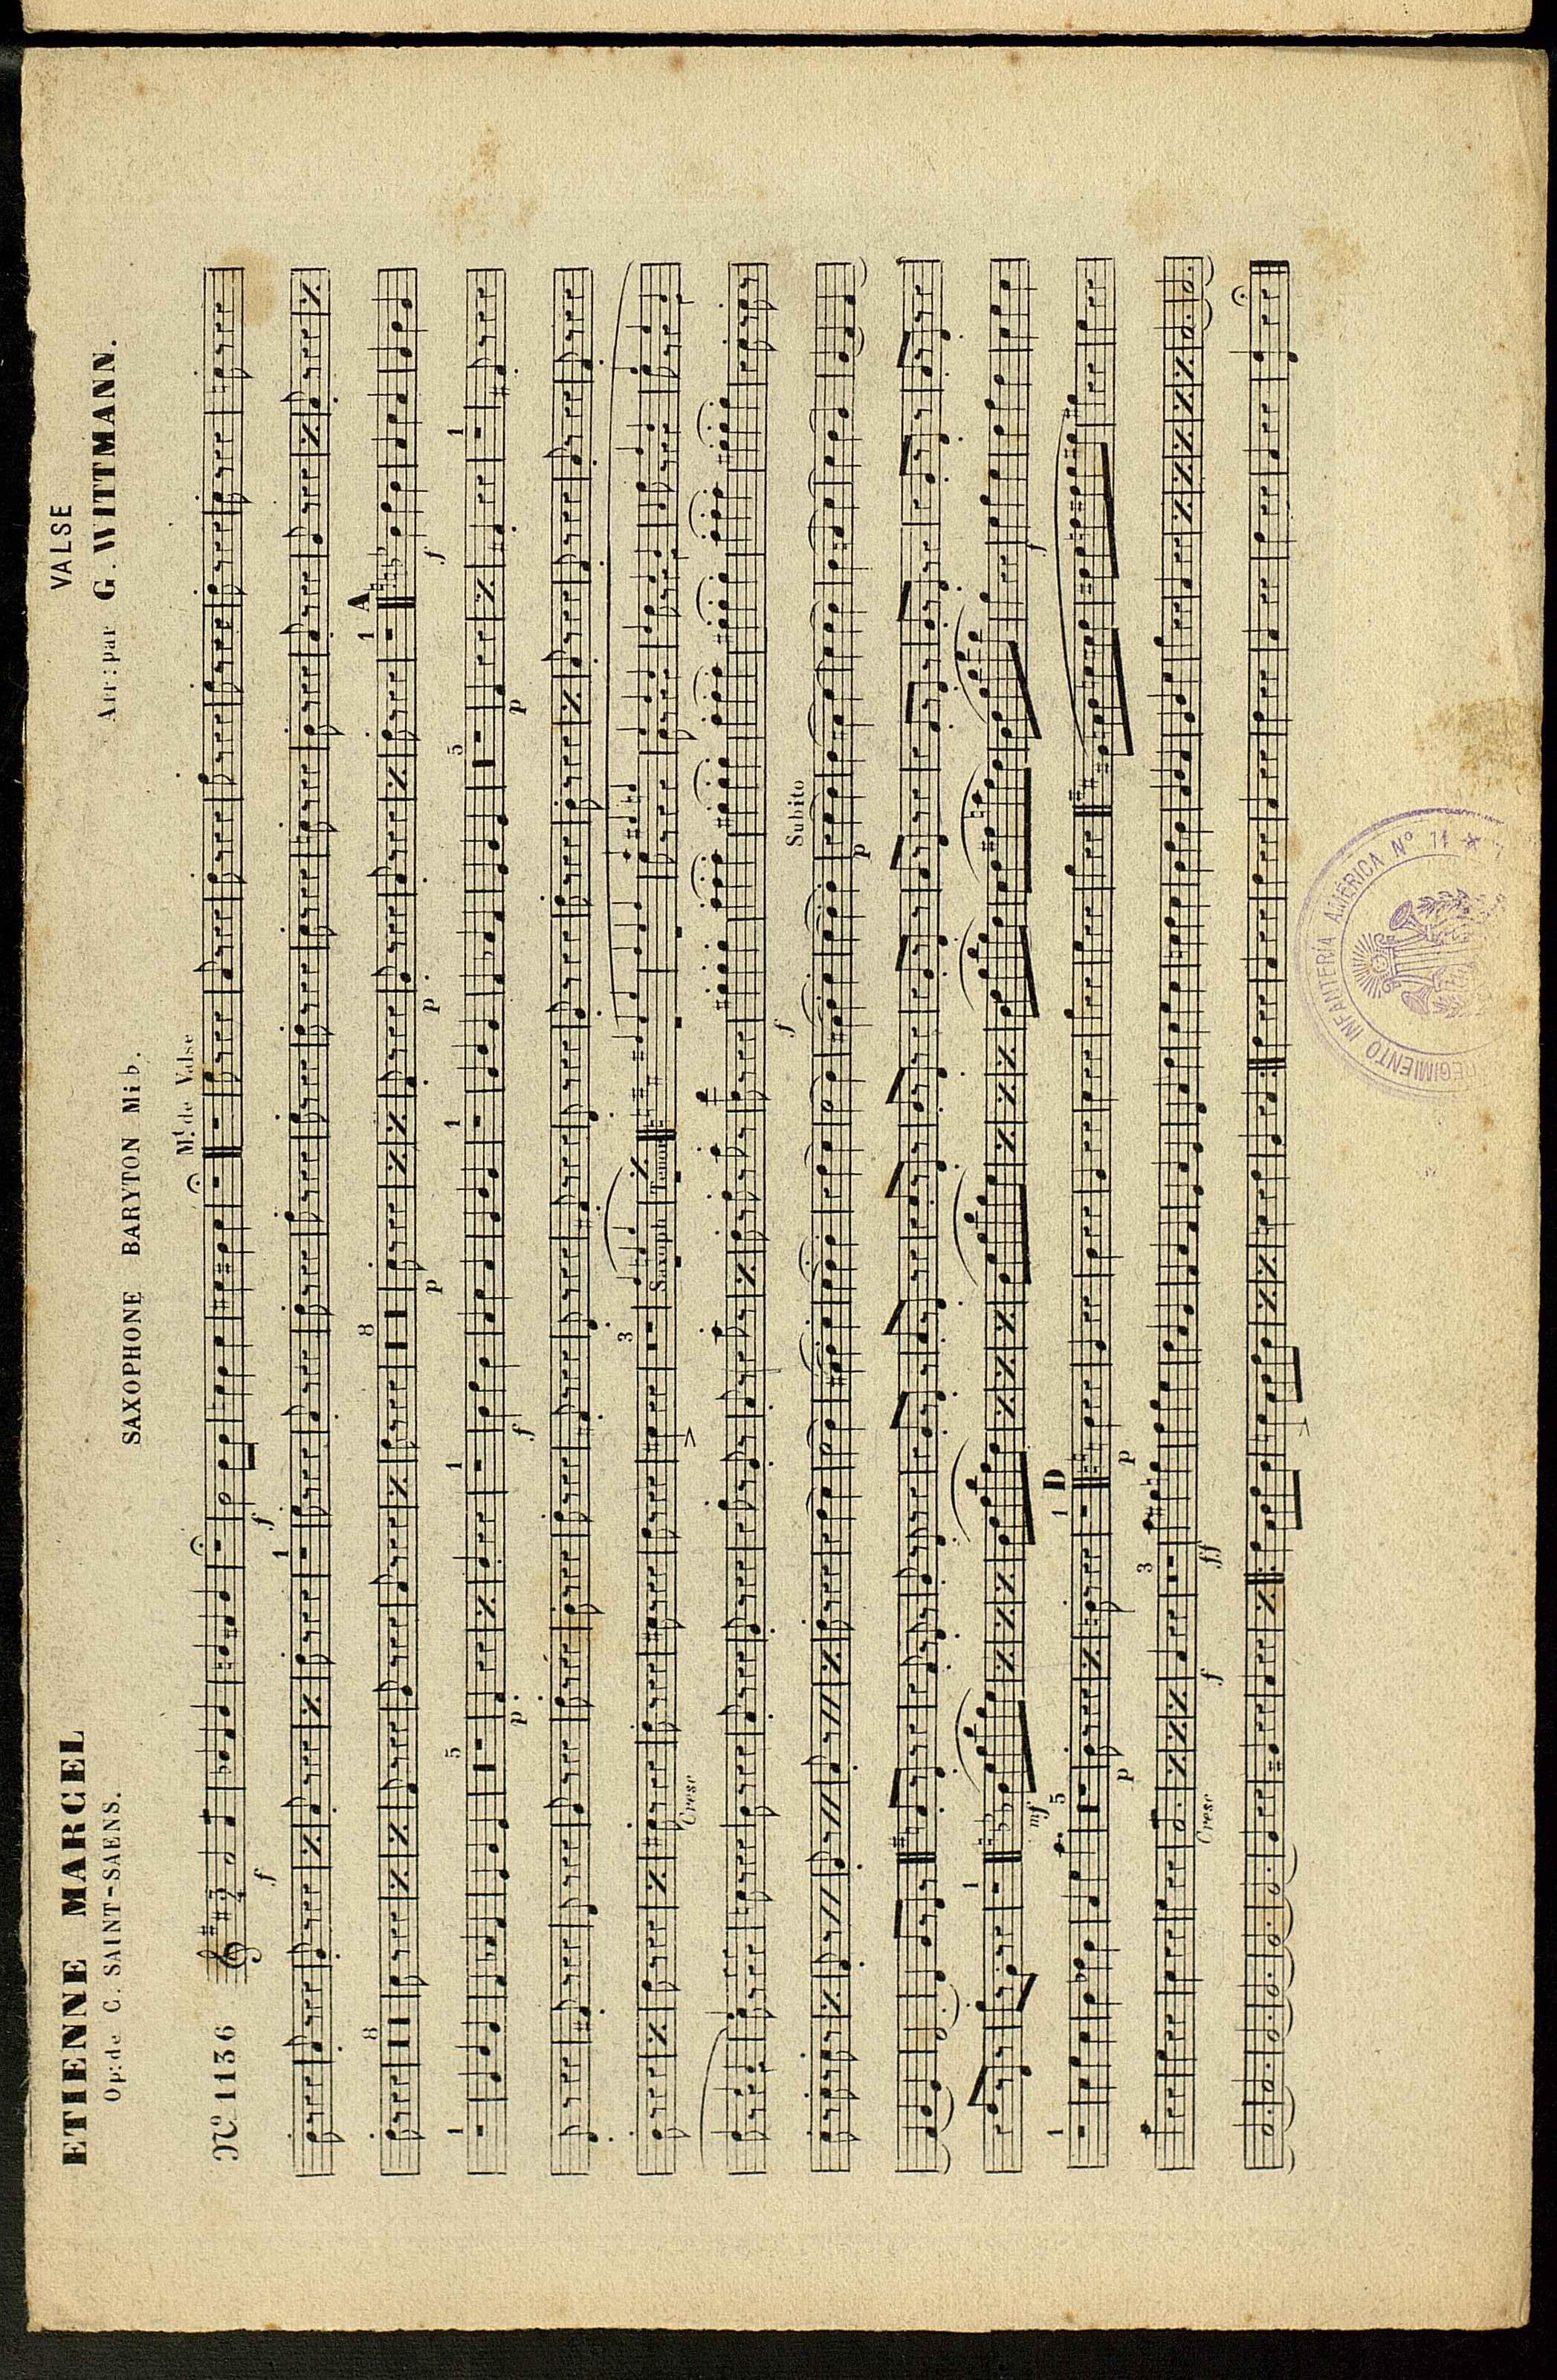 ETIENNE MARCEL
Op: de C. SAINT-SAENS.
VALSE
Arr: par G. WITTMANN.
SAXOPHONE BARYTON Mi b.
Nº 1136
Mt de Valse
f
f
1
8
8
1
A
p
p
f
1
5
1
1
5
1
p
f
p
Cresc
3
Saxoph Tenor
f
Subito
p
1
mf
f
1
5
1
D
p
p
Cresc
f
3
ff
REGIMIENTO INFANTERÍA AMÉRICA Nº 14